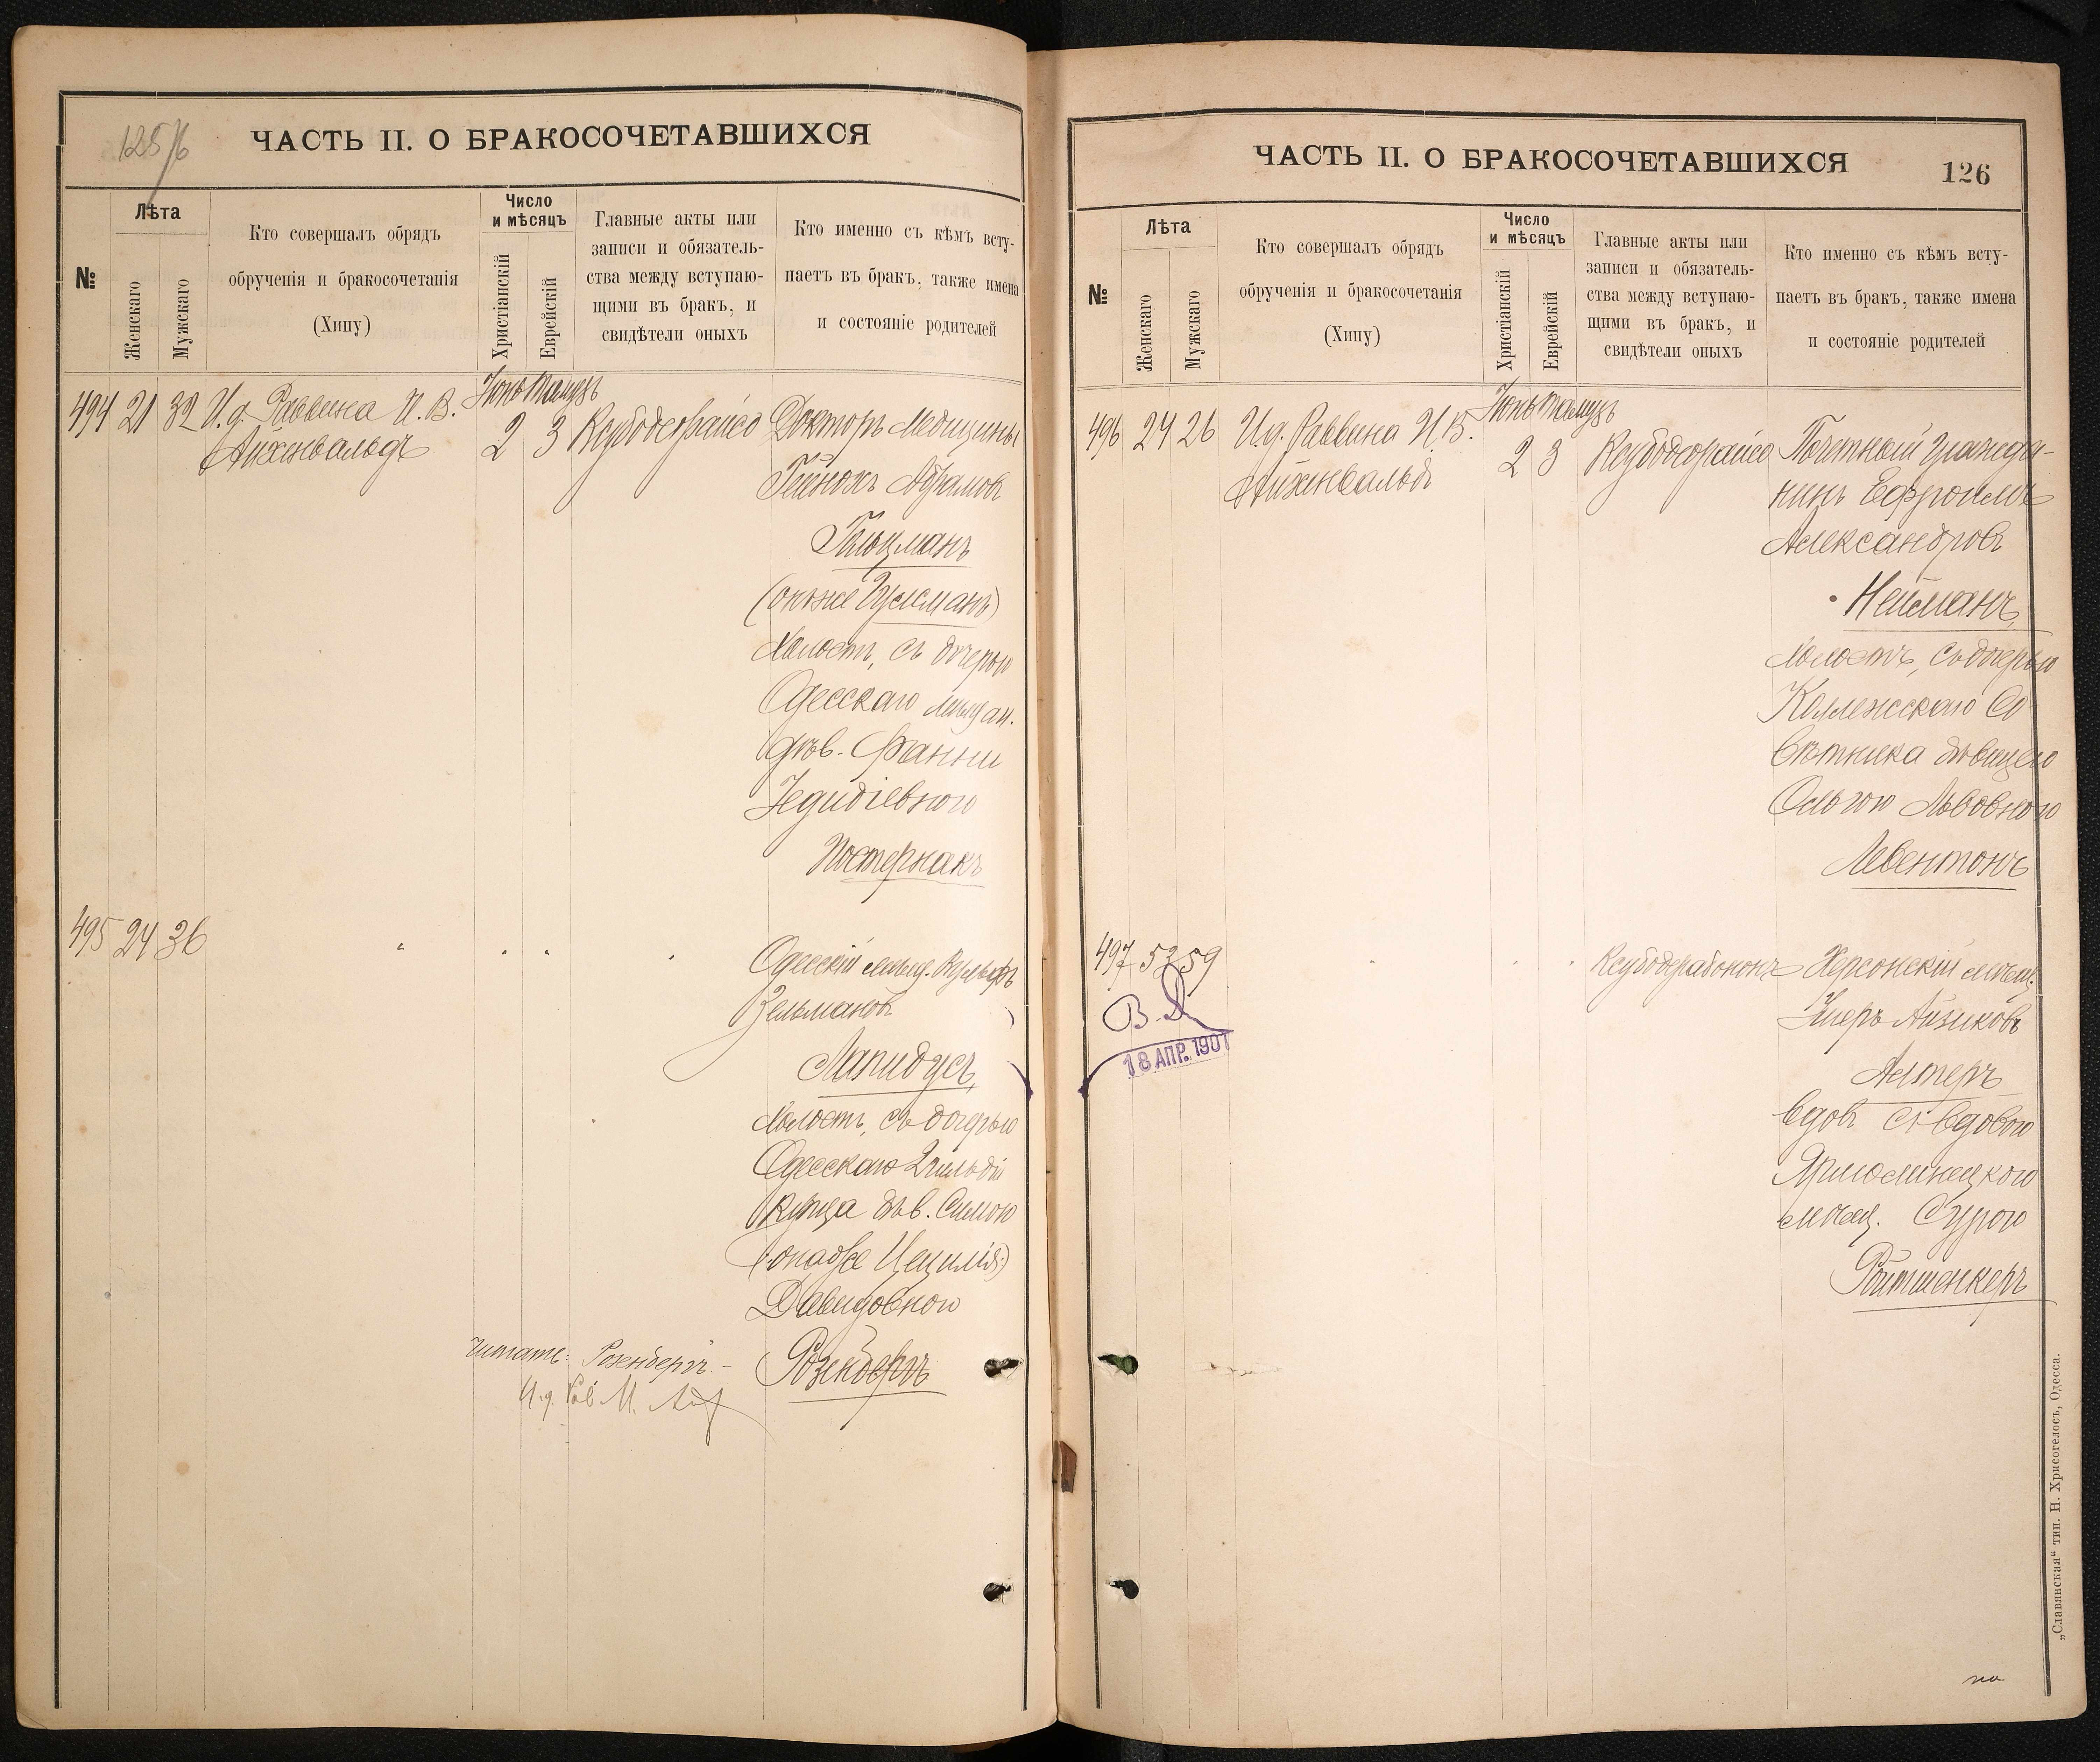 125/б
ЧАСТЬ II. О БРАКОСОЧЕТАВШИХСЯ
№
Лѣта
Женскаго
Мужскаго
Кто совершалъ обрядъ
обрученія и бракосочетанія
(Хипу)
Число
и мѣсяцъ
Христіанскій
Еврейскій
Главные акты или
записи и обязатель-
ства между вступаю-
щими въ бракъ, и
свидѣтели оныхъ
Кто именно съ кѣмъ всту-
паетъ въ бракъ, также имена
и состояніе родителей
Іюнь Тамузъ
494 21 32 И.д. Раввина И. В. 2 3 Ксубодеорайсо Докторъ Медицины
Айхенвальдъ
Гейнохъ Абрамовъ
Гольцманъ
(онъ же Гузманъ)
холостъ, съ дочерью
Одесскаго мѣщан.
дѣв. Фанни
Іедидіевною
Постернакъ
495 24 36 " " " " Одесскій мѣщ. Вульфъ
Зельмановъ
Лапидусъ,
холостъ, съ дочерью
Одесскаго 2 гильдіи
Купца дѣв. Симою
(она же Цецилія)
Давидовною
Розенбергъ
Читать: Розенбергъ. -
И.д. Рав.
ЧАСТЬ II. О БРАКОСОЧЕТАВШИХСЯ
126
№
Лѣта
Женскаго
Мужскаго
Кто совершалъ обрядъ
обрученія и бракосочетанія
(Хипу)
Число
и мѣсяцъ
Христіанскій
Еврейскій
Главные акты или
записи и обязатель-
ства между вступаю-
щими въ бракъ, и
свидѣтели оныхъ
Кто именно съ кѣмъ всту-
паетъ въ бракъ, также имена
и состояніе родителей
Іюнь Тамузъ
496 24 26 И.д. Раввина И. В. 2 3 Ксубодеорайсо Почетный гражда-
Айхенвальдъ
нинъ Ефроимъ
Александровъ
Нейманъ,
холостъ, съ дочерью
Коллежскаго Со
вѣтника дѣвицею
Ольгою Львовною
Левентонъ
497 52 59 " " " Ксубодерабононъ Херсонскій мѣщ.
Айзиковъ
Алтеръ
вдов. съ вдовою
Ярмолинецкою
мѣщ. Сурою
Ройтшенкеръ
В. Д
18 АПР. 1901
„Славянская“ тип. Н. Хрисогелосъ, Одесса.